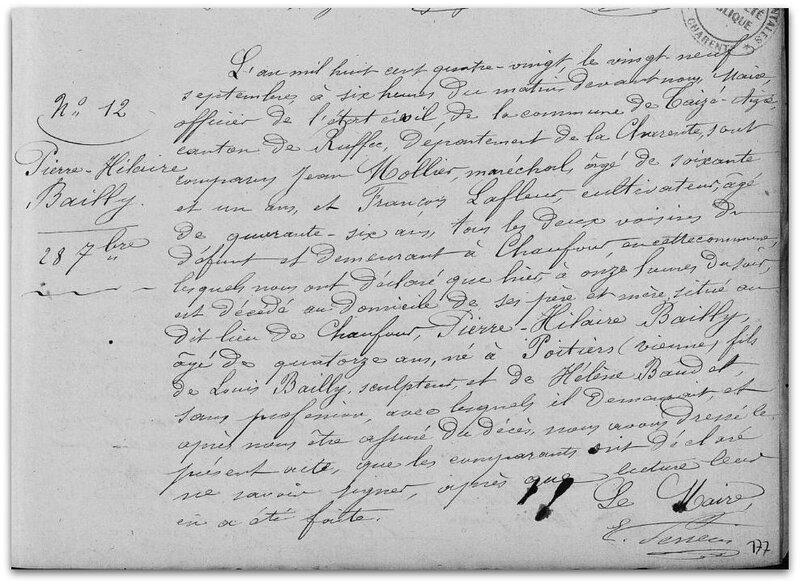 L'an mil huit cent quatre-vingt, le vingt neuf
septembre, à six heures du matin devant nous Maire
officier de l'état civil de la commune de Taizé-Aizie
canton de Ruffec, département de la Charente, sont
comparus Jean Mollier, maréchal, âgé de soixante
et un ans, et François Lafleur, cultivateur, âgé
de quarante-six ans, tous les deux voisins du
défunt et demeurant à Chaufour, en cette commune,
lesquels nous ont déclaré que hier, à onze heures du soir,
est décédé au domicile de ses père et mère, situé au
dit lieu de Chaufour, Pierre-Hilaire Bailly,
âgé de quatorze ans, né à Poitiers (vienne) fils
de Louis Bailly, sculpteur et de Hélène Baudet,
sans profession, avec lesquels il demeurait, et
après nous être assuré du décès, nous avons dressé le
présent acte, que les comparants ont déclaré
ne savoir signer, après que lecture leur
en a été faite.
Le Maire,
N° 12
Pierre-Hilaire
Bailly.
28 7bre
PUBLIQUE
CHARENTE
177